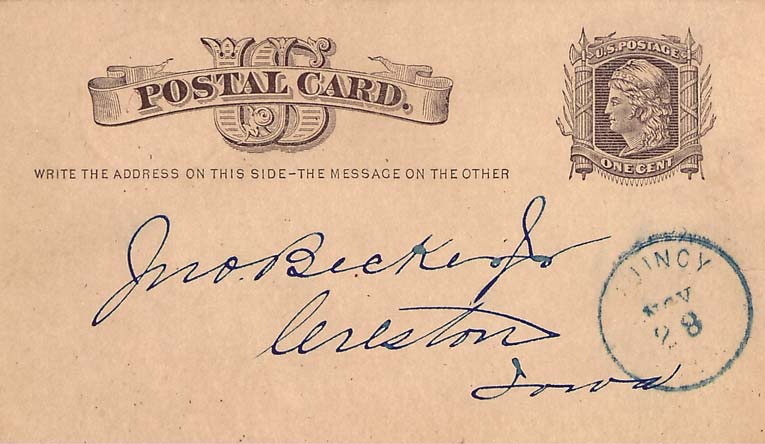 US
POSTAL CARD.
U.S. POSTAGE
ONE CENT
WRITE THE ADDRESS ON THIS SIDE-THE MESSAGE ON THE OTHER
Jno. Becker Jr
Creston
Iowa
QUINCY
NOV
28